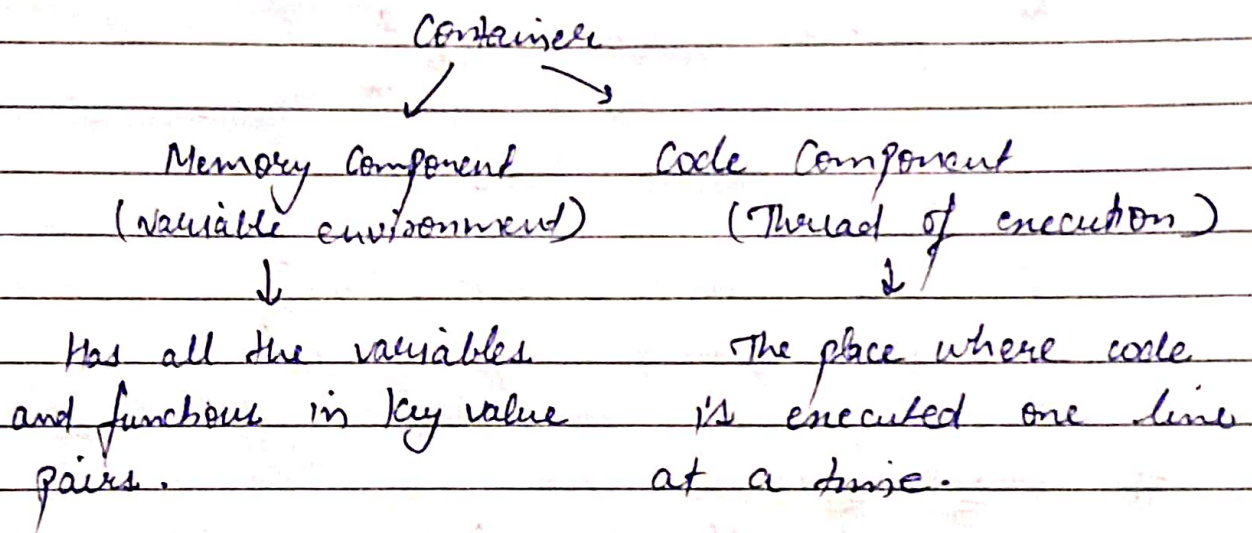 Container
Memory Component
(Variable environment)
Has all the variables
and functions in key value
pairs.
Code Component
(Thread of execution)
The place where code
is executed one line
at a time.